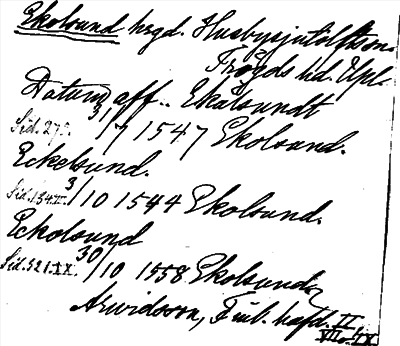 Ekolsund hrgd. Husbysjutolfts sn.
Trögds hd. Upl.
Datum, aff.. Ekålsundt
Sid. 275. 31/7 1547 Ekolsund.
Eckelsund.
Sid. 134.II. 3/10 1544 Ekolsund.
Eckolsund
Sid. 321.IX. 30/10 1558 Ekolsund
Arwidsson, Finl. häfd. II
VII o. IX